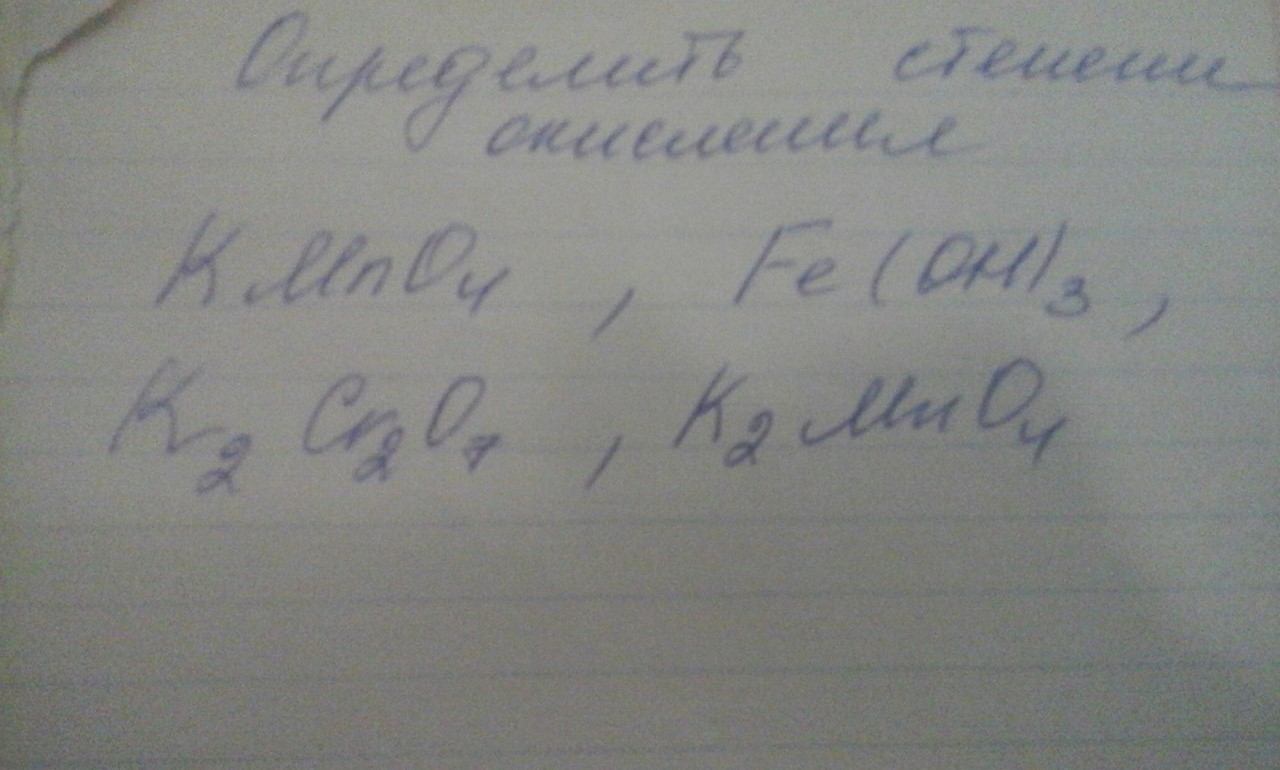 Определить степени
окисления
KMnO₄, Fe(OH)₃,
K₂Cr₂O₇, K₂MnO₄